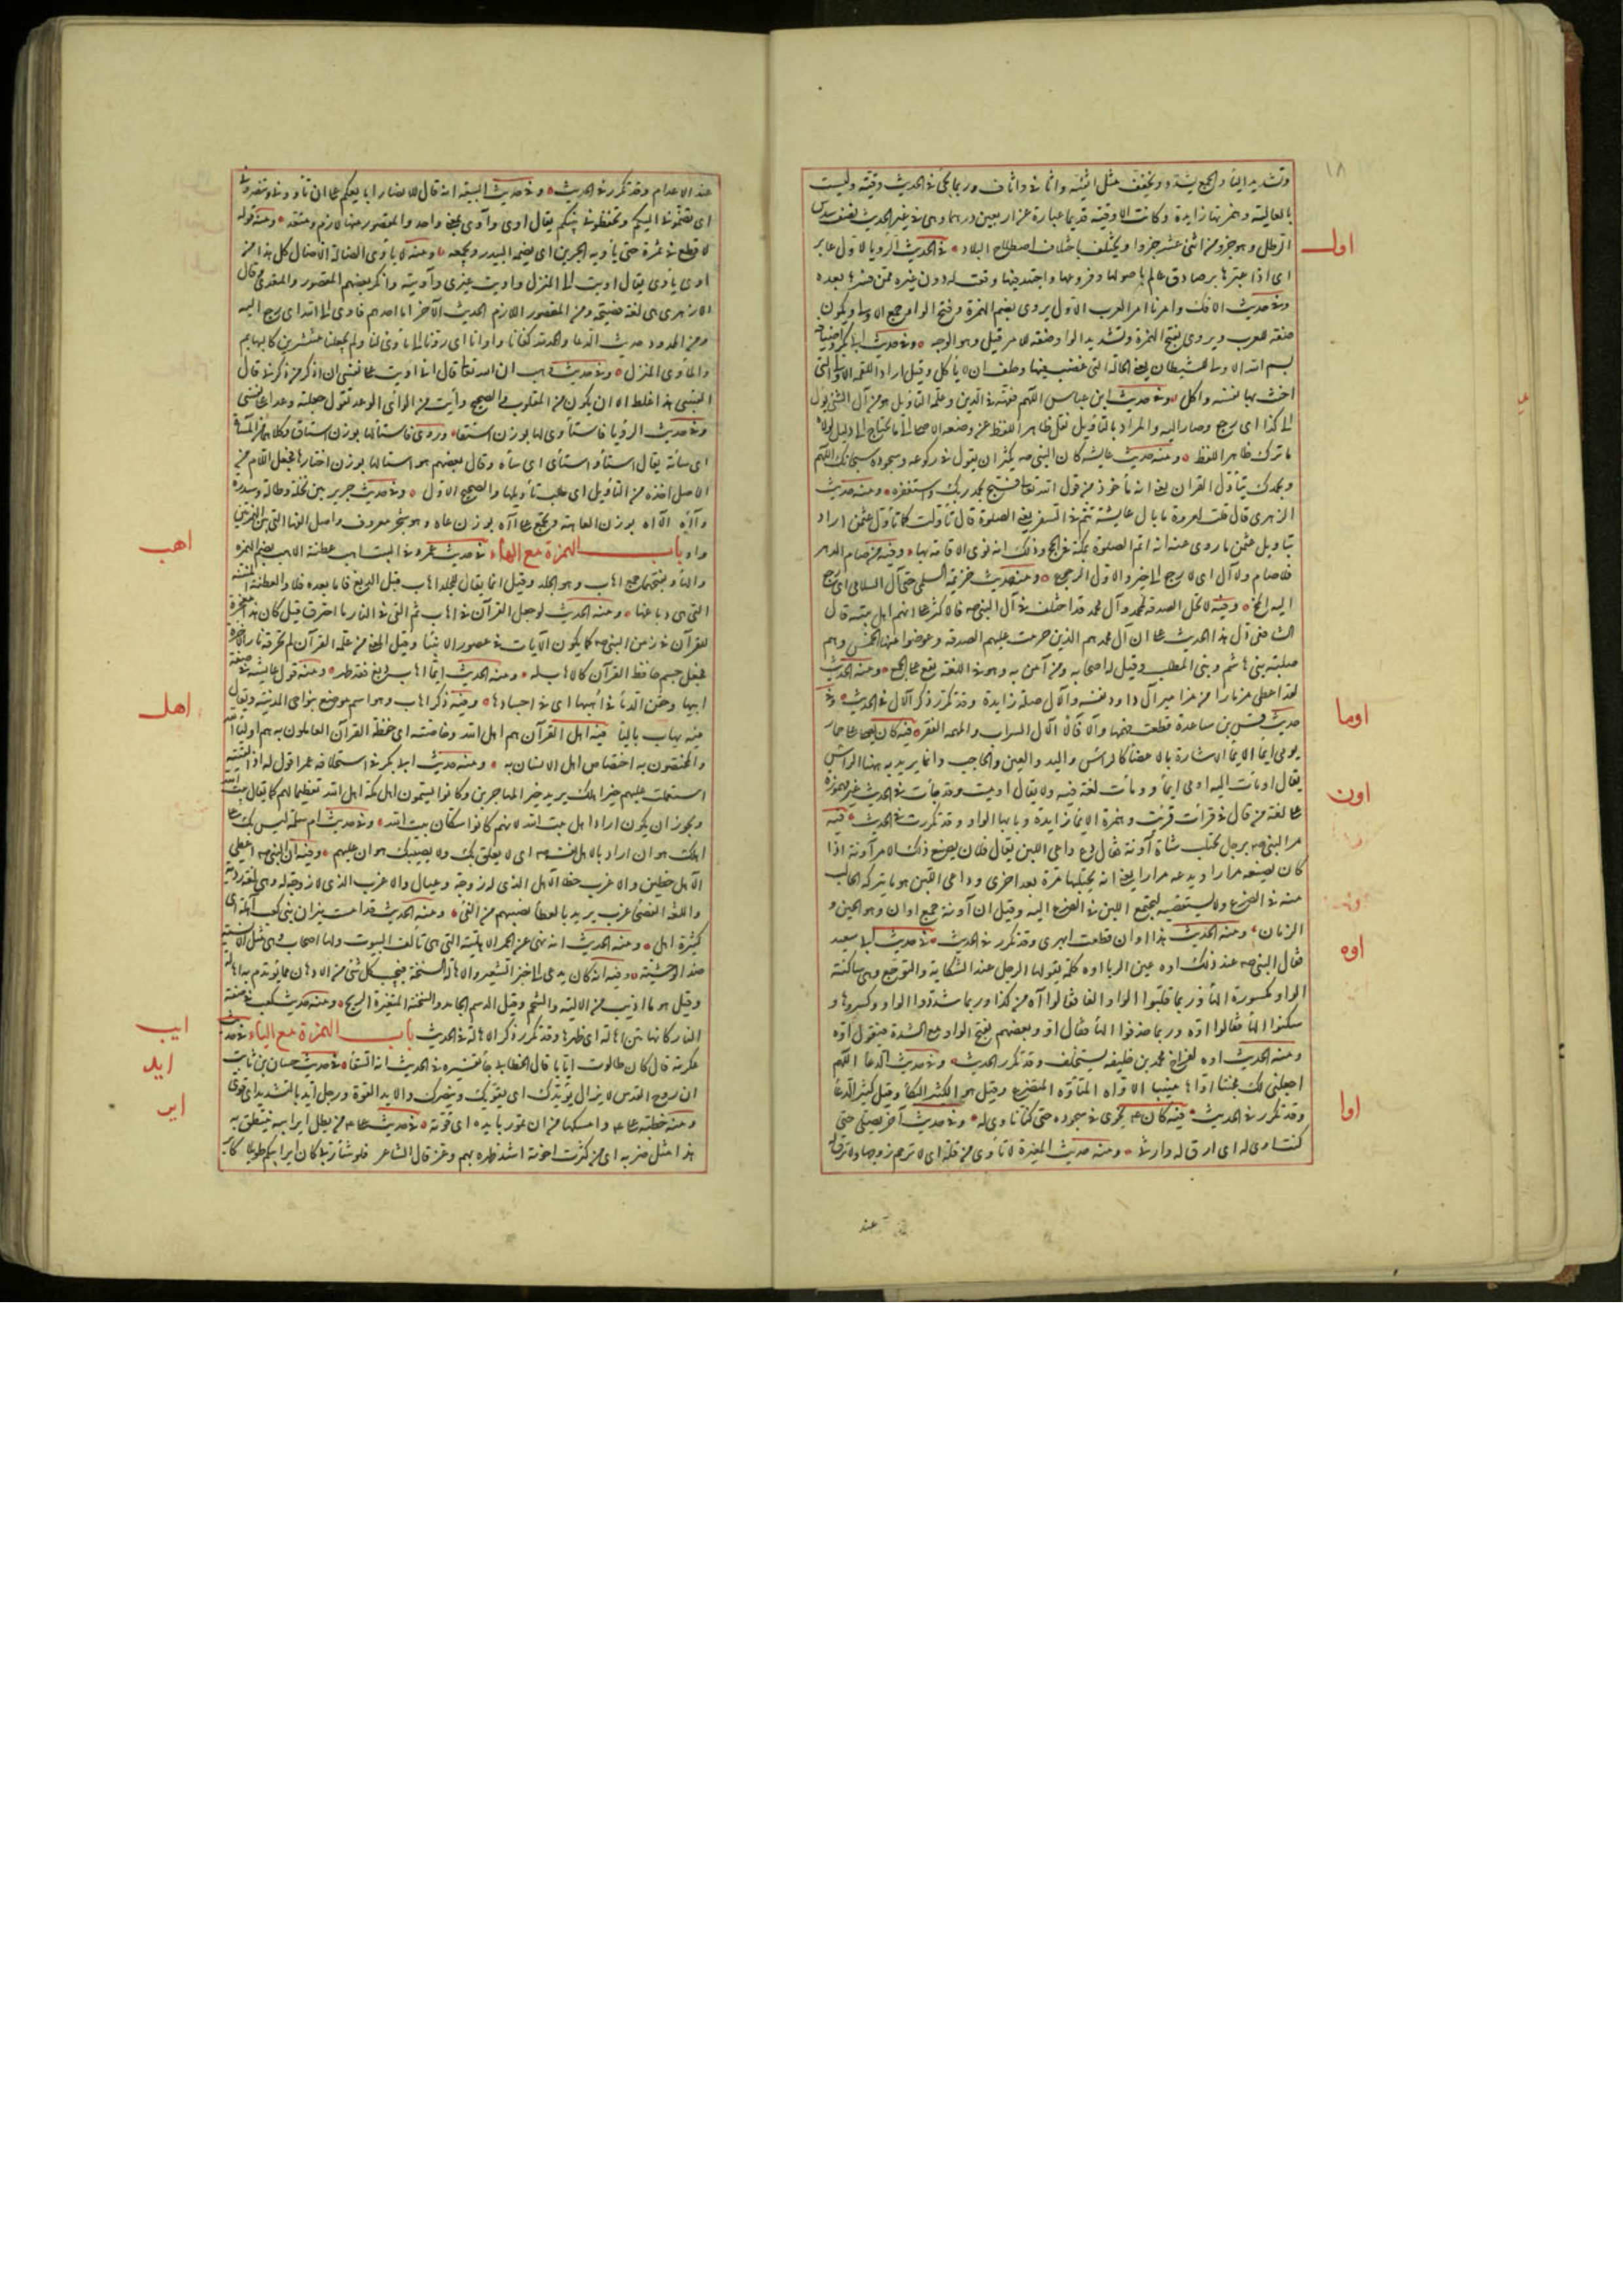 ١٨
وتشديد الياء والجمع يشدد ويخفف مثل اثفية واثافي واثاف وربما يجئ في الحديث وقية وليست
بالعالية وهمزتها زايدة وكانت الاوقية قديما عبارة عن اربعين درهما وهى في غير الحديث نصف سدس
اول
الرطل وهو جزو من اثنى عشر جزوا ويختلف باختلاف اصطلاح البلاد في الحديث الرويا لاول عابر
اى اذا عبرها بر صادق عالم باصولها وفروعها واجتهد فيها وقعت له دون غيره ممن فسرها بعده
وفي حديث الافك وامرنا امر العرب الاول يروى بضم الهمزة وفتح الواو جمع الاولى ويكون
صفة للعرب ويروى بفتح الهمزة وتشديد الواو صفة للامر قيل وهو الوجه وفي حديث ابى بكر واضيافه
بسم الله الاولى للشيطان يعنى الحالة التى غضب فيها وحلف ان لا يأكل وقيل اراد اللقمة الاولى التى
احنث بها نفسه واكل وفي حديث ابن عباس اللهم فقهه في الدين وعلمه التاويل هو من آل الشئ يؤل
الى كذا اى رجع وصار اليه والمراد بالتأويل نقل ظاهر اللفظ عن وضعه الاصلى الى ما يحتاج الى دليل لولاه
ما ترك ظاهر اللفظ ومنه حديث عايشه كان النبى صه يكثر ان يقول في ركوعه وسجوده سبحانك اللهم
وبحمدك يتأول القران يعنى انه مأخوذ من قول الله تعالى فسبح بحمد ربك واستغفره ومنه حديث
الزهرى قال قلت لعروة ما بال عايشة تتم في السفر يعنى الصلوة قال تأولت كما تأول عثمن اراد
بتاويل عثمن ما روى عنه انه اتم الصلوة بمكة في الحج وذلك انه نوى الاقامة بها وفيه من صام الدهر
فلا صام ولا آل اى لا رجع الى خير والاول الرجوع ومنه حديث خزيمة السلمى حتى آل السلامى اى رجع
اليه المخ وفيه لا تحل الصدقة لمحمد وآل محمد قد اختلف في آل النبى صه فالاكثر على انهم اهل بيته قال
الشافعى دل هذا الحديث على ان آل محمد هم الذين حرمت عليهم الصدقه وعوضوا منها الخمس وهم
صليبة بنى هاشم وبنى المطلب وقيل آله اصحابه ومن آمن به وهو في اللغة يقع على الجميع ومنه الحديث
اوما
لقد اعطى مزمارا من مزامير آل داود نفسه والآل صلة زايدة وقد تكرر ذكر الآل في الحديث وفي
حديث قس بن ساعدة قطعت مهمها وآلا فآلا الآل السراب والمهمه القفر فيه كان يصلى على حمار
يومى ايماء الايماء الاشارة بالاعضاء كالرأس واليد والعين والحاجب وانما يريد به ههنا الراس
اون
يقال اومأت اليه اومى ايماء وومأت لغة فيه ولا يقال اوميت وقد جأت في الحديث غير مهموزة
على لغة من قال في قرأت قريت وهمزة الايماء زايدة وبابها الواو وقد تكررت في الحديث فيه
مر النبى صه برجل يحتلب شاة آونة فقال دع داعى اللبن يقال فلان يصنع ذلك الامر آونة اذا
كان يصنعه مرارا ويدعه مرارا يعنى انه يحتلبها مرة بعد اخرى وداعى اللبن هو ما يتركه الحالب
منه في الضرع ولا يستقصيه ليجتمع اللبن في الضرع اليه وقيل ان آونة جمع اوان وهو الحين و
الزمان ومنه الحديث هذا اوان قطعت ابهرى وقد تكرر في الحديث في حديث ابى سعيد
اوه
فقال النبى صه عند ذلك اوه عين الربا اوه كلمة يقولها الرجل عند الشكاية والتوجع وهى ساكنة
الواو مكسورة الهاء وربما قلبوا الواو الفا فقالوا آه من كذا وربما شددوا الواو وكسروها و
سكنوا الهاء فقالوا اوّه وربما حذفوا الهاء فقال اوّ وبعضهم يفتح الواو مع الشدة فيقول اوّه
ومنه الحديث اوه لفراخ محمد من خليفه يستخلف وقد تكرر الحديث وفي حديث الدعاء اللهم
اجعلنى لك مخبتا اواها منيبا الاواه المتأوه المتضرع وقيل هو الكثير البكاء وقيل كثير الدعاء
اوا
وقد تكرر في الحديث فيه كان ع يخوى في سجوده حتى كنا ناوى له وفي حديث آخر يصلى حتى
كنت اوى له اى ارق له وارثى ومنه حديث المغيرة لا تأوى من قلة اى لا ترحم زوجها ولا ترق له
عند
عند الاعدام وقد تكرر في الحديث وفي حديث البيعة انه قال للانصار ابايعكم على ان تأوونى وتنصرونى
اى تضمونى اليكم وتحفظونى بينكم يقال اوى وآوى بمعنى واحد والمقصور منها لازم ومتعد ومنه قوله
لا قطع في ثمرة حتى يأويه الجرين اى يضمه البيدر ويجمعه ومنه لا يأوى الضالة الا ضال كل هذا من
اوى يأوى يقال اويت الى المنزل واويت غيرى وآويته وانكر بعضهم المقصور والمتعدى وقال
الازهرى هى لغة فصيحة ومن المقصور اللازم الحديث الآخر اما احدهم فاوى الى الله اى رجع اليه
ومن الممدود حديث الدعا والحمد لله كفانا واوانا اى ردنا الى ماوى لنا ولم يجعلنا منتشرين كالبهايم
والمأوى المنزل وفي حديث وهب ان الله تعالى قال انى اويت على نفسى ان اذكر من ذكرنى قال
القتيبى هذا غلط الا ان يكون من المقلوب والصحيح وأيت من الوأى الوعد تقول جعلته وعدا على نفسى
وفي حديث الرؤيا فاستأوى لها بوزن استقا وروى فاستالها بوزن استاق وكلاهما من المساءة
اى ساءته يقال استأ واستأى اى ساه وقال بعضهم هو استالها بوزن اختارها فجعل اللام من
الاصل اخذه من التأويل اى طلب تأويلها والصحيح الاول وفي حديث جرير بين نخلة وضالة وسدرة
وآأه الآاه بوزن العاهة وتجمع على آاه بوزن عاه وهو شجر معروف واصل الفها التى بين الهمزتين
اهب
واو باب الهمزة مع الهاء في حديث عمر وفي البيت اهب عطنة الاهب بضم الهمزة
والهاء وبفتحهما جمع اهاب وهو الجلد وقيل انما يقال للجلد اهاب قبل الدبغ فاما بعده فلا والعطنة المنتنة
التى هى دباغها ومنه الحديث لو جعل القرآن في اهاب ثم القى في النار ما احترق قيل كان هذا معجزة
للقرآن في زمن النبى صه كما يكون الآيات في عصور الانبيا وقيل المعنى من علمه القرآن لم تحرقه نار الآخرة
فجعل جسم حافظ القرآن كالاهاب له ومنه الحديث ايما اهاب دبغ فقد طهر ومنه قول عايشه في صفة
اهل
ابيها وحقن الدماء في اهبها اى في اجسادها وفيه ذكر اهاب وهو اسم موضع بنواحى المدينة ويقال
فيه يهاب بالياء فيه اهل القرآن هم اهل الله وخاصته اى حفظة القرآن العاملون به هم اولياء الله
والمختصون به اختصاص اهل الانسان به ومنه حديث ابى بكر في استخلافه عمر اقول له اذا لقيته
استعملت عليهم خير اهلك يريد خير المهاجرين وكانوا يسمون اهل مكة اهل الله تعظيما لهم كما يقال بيت الله
ويجوز ان يكون اراد اهل بيت الله لانهم كانوا سكان بيت الله وفي حديث ام سلمة ليس بك على
اهلك هوان اراد بالاهل نفسه اى لا يعلق بك ولا يصيبك هوان عليهم وفيه ان النبى صه اعطى
الآهل حظين والاعزب حظا الآهل الذى له زوجة وعيال والاعزب الذى لا زوجة له وهى لغة ردية
واللغة الفصحى عزب يريد بالعطاء نصيبهم من الفئ ومنه الحديث لقد امست نيران بنى كعب آهلة اى
كثيرة الاهل ومنه الحديث انه نهى عن الحمر الاهلية التى هى تألف البيوت ولها اصحاب وهى مثل الانسية
ضد الوحشية وفيه انه كان يدعى الى خبز الشعير والاهالة السنخة فيجيب كل شئ من الادهان مما يؤتدم به اهالة
وقيل هو ما اذيب من الالية والشحم وقيل الدسم الجامد والسنخة المتغيرة الريح ومنه حديث كعب في صفة
ايب
النار كانها متن اهالة اى ظهرها وقد تكرر ذكر الاهالة في الحديث باب الهمزة مع الياء في حديث
ايد
عكرمة قال كان طالوت ايابا قال الخطابى جاء تفسيره في الحديث انه السقاء في حديث حسان بن ثابت
ان روح القدس لا يزال يؤيدك اى يقويك وينصرك والايد القوة ورجل ايد بالتشديد اى قوى
اير
ومنه خطبة على ع وامسكها من ان تمور بايده اى قوته في حديث على ع من يطل اير ابيه ينتطق به
هذا مثل ضربه اى من كثرت اخوته اشتد ظهره بهم وعز قال الشاعر فلو شاء ربى كان اير ابيكم طويلا كاير